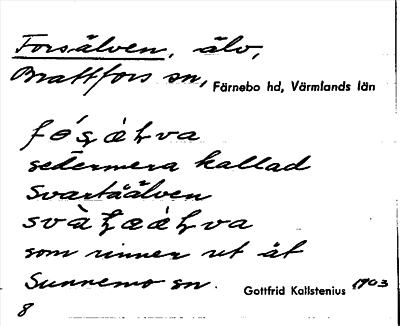 Forsälven, älv,
Brattfors sn, Färnebo hd, Värmlands län
sedermera kallad
Svartåälven
som rinner ut åt
Sunnemo sn. Gottfrid Kallstenius 1903
8